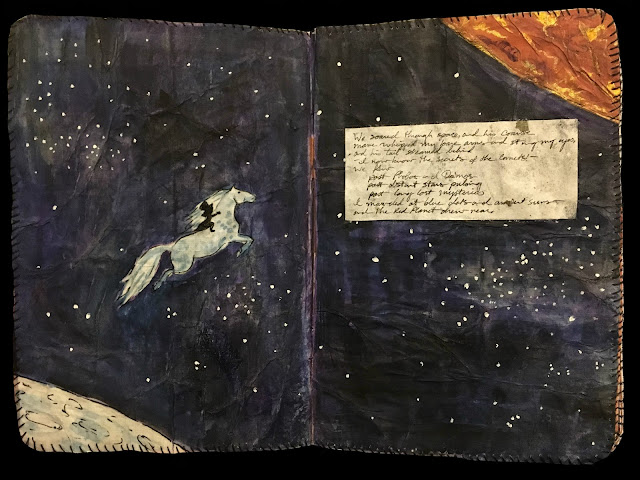 We soared through space, and his coarse
mane whipped my bare arms and stung my eyes
and his tail steamed behind
- I now know the secrets of the comets! -
We flew
past Phobos and Deimos
past distant stars pulsing
past long lost mysteries
I marveled at blue dots and ancient suns
and the Red Planet drew near